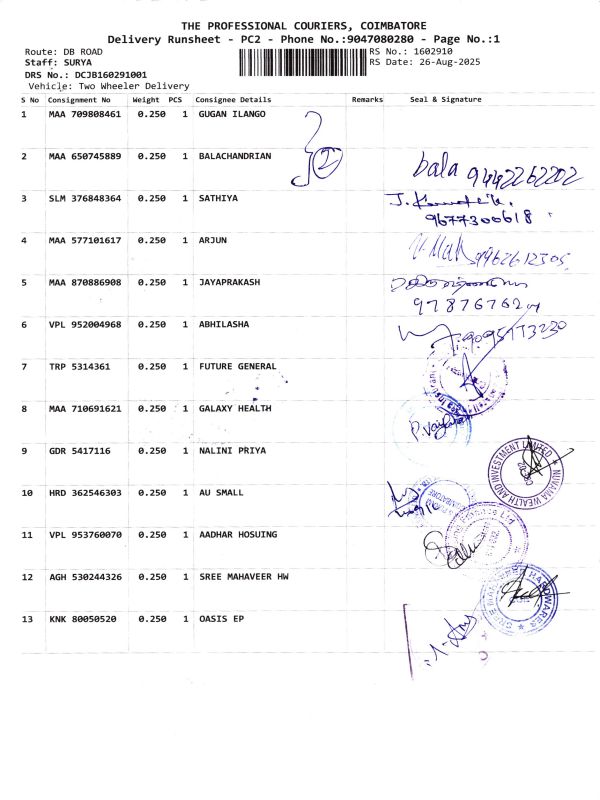 THE PROFESSIONAL COURIERS, COIMBATORE
Delivery Runsheet - PC2 - Phone No.:9047080280 - Page No.:1
Route: DB ROAD
RS No.: 1602910
Staff: SURYA
RS Date: 26-Aug-2025
DRS No.: DCJB160291001
Vehicle: Two Wheeler Delivery
S No Consignment No Weight PCS Consignee Details Remarks Seal & Signature
1 MAA 709808461 0.250 1 GUGAN ILANGO
2 MAA 650745889 0.250 1 BALACHANDRIAN 2 bala 9442262202
3 SLM 376848364 0.250 1 SATHIYA
9677300618
4 MAA 577101617 0.250 1 ARJUN 9962612305
5 MAA 870886908 0.250 1 JAYAPRAKASH
6 VPL 952004968 0.250 1 ABHILASHA
7 TRP 5314361 0.250 1 FUTURE GENERAL
8 MAA 710691621 0.250 1 GALAXY HEALTH
9 GDR 5417116 0.250 1 NALINI PRIYA NUVAMA WEALTH AND INVESTMENT LIMITED
10 HRD 362546303 0.250 1 AU SMALL
11 VPL 953760070 0.250 1 AADHAR HOSUING
12 AGH 530244326 0.250 1 SREE MAHAVEER HW
13 KNK 80050520 0.250 1 OASIS EP